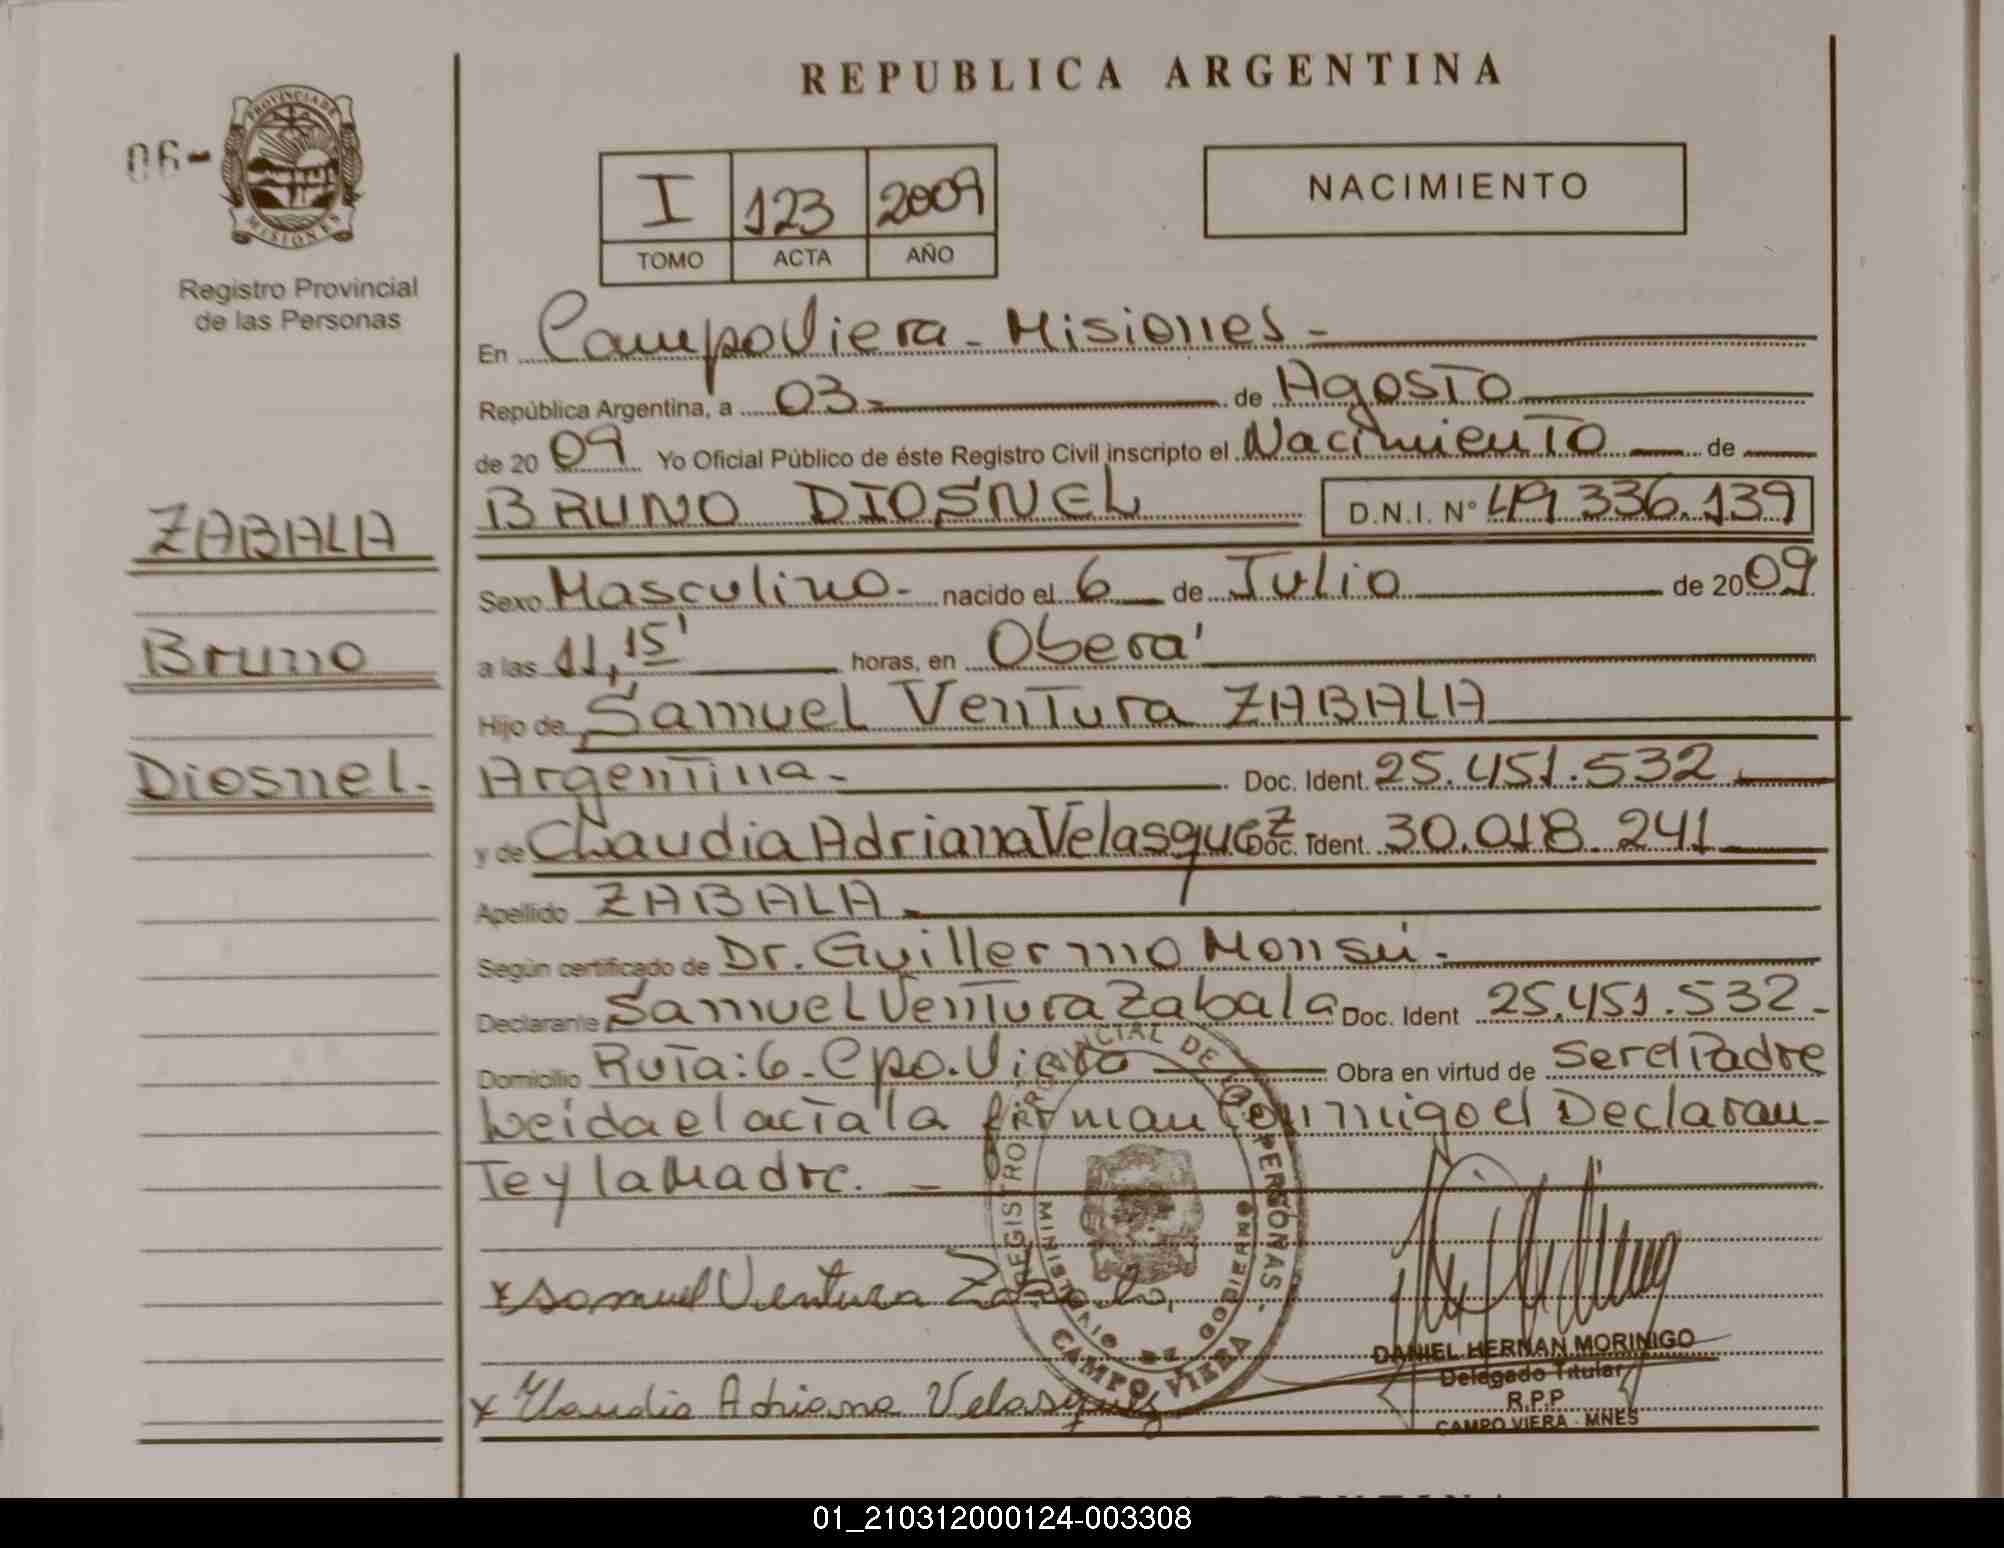 REPUBLICA ARGENTINA
06-
PROVINCIA DE
MISIONES
Registro Provincial
de las Personas
I 123 2009
TOMO ACTA AÑO
NACIMIENTO
En CampoViera - Misiones -
República Argentina, a 03- de Agosto
de 2009 Yo Oficial Público de éste Registro Civil inscripto el Nacimiento de
BRUNO DIOSNEL D.N.I. N° 49.336.139
ZABALA
Bruno
Diosnel.
Sexo Masculino - nacido el 6 de Julio de 2009
a las 11,15' horas, en Oberá
Hijo de Samuel Ventura ZABALA
Argentina - Doc. Ident. 25.451.532
y de Claudia Adriana Velasquez Doc. Ident. 30.018.241
Apellido ZABALA
Según certificado de Dr. Guillermo Monsú -
Declarante Samuel Ventura Zabala Doc. Ident 25.451.532 -
Domicilio Ruta: 6 - Cpo. Viera Obra en virtud de Ser el Padre
Leída el acta la firman Conmigo el Declaran-
te y la Madre. -
x Samuel Ventura Zabala
x Claudia Adriana Velasquez
REGISTRO PROVINCIAL DE LAS PERSONAS
MINISTERIO DE GOBIERNO
CAMPO VIERA
DANIEL HERNAN MORINIGO
Delegado Titular
R.P.P
CAMPO VIERA - MNES
01_210312000124-003308